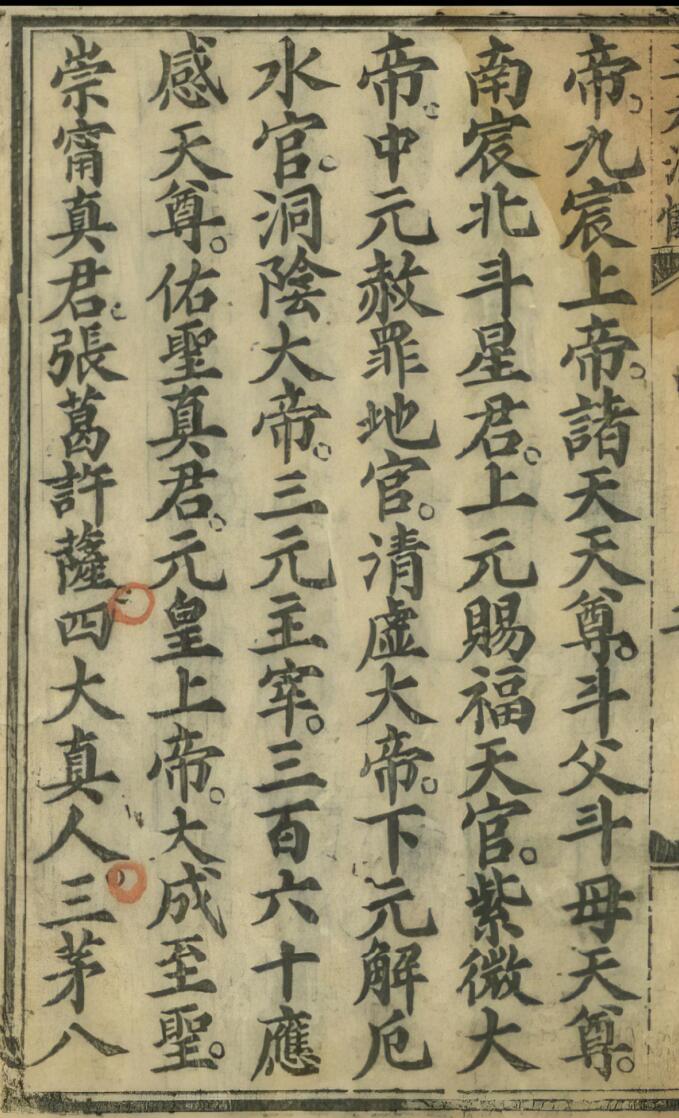 帝。九宸上帝。諸天天尊。斗父斗母天尊。
南宸北斗星君。上元賜福天官。紫微大
帝。中元赦罪地官。清虛大帝。下元解厄
水官。洞陰大帝。三元主宰。三百六十應
感天尊。佑聖真君。元皇上帝。大成至聖。
崇甯真君。張葛許薩四大真人三茅八